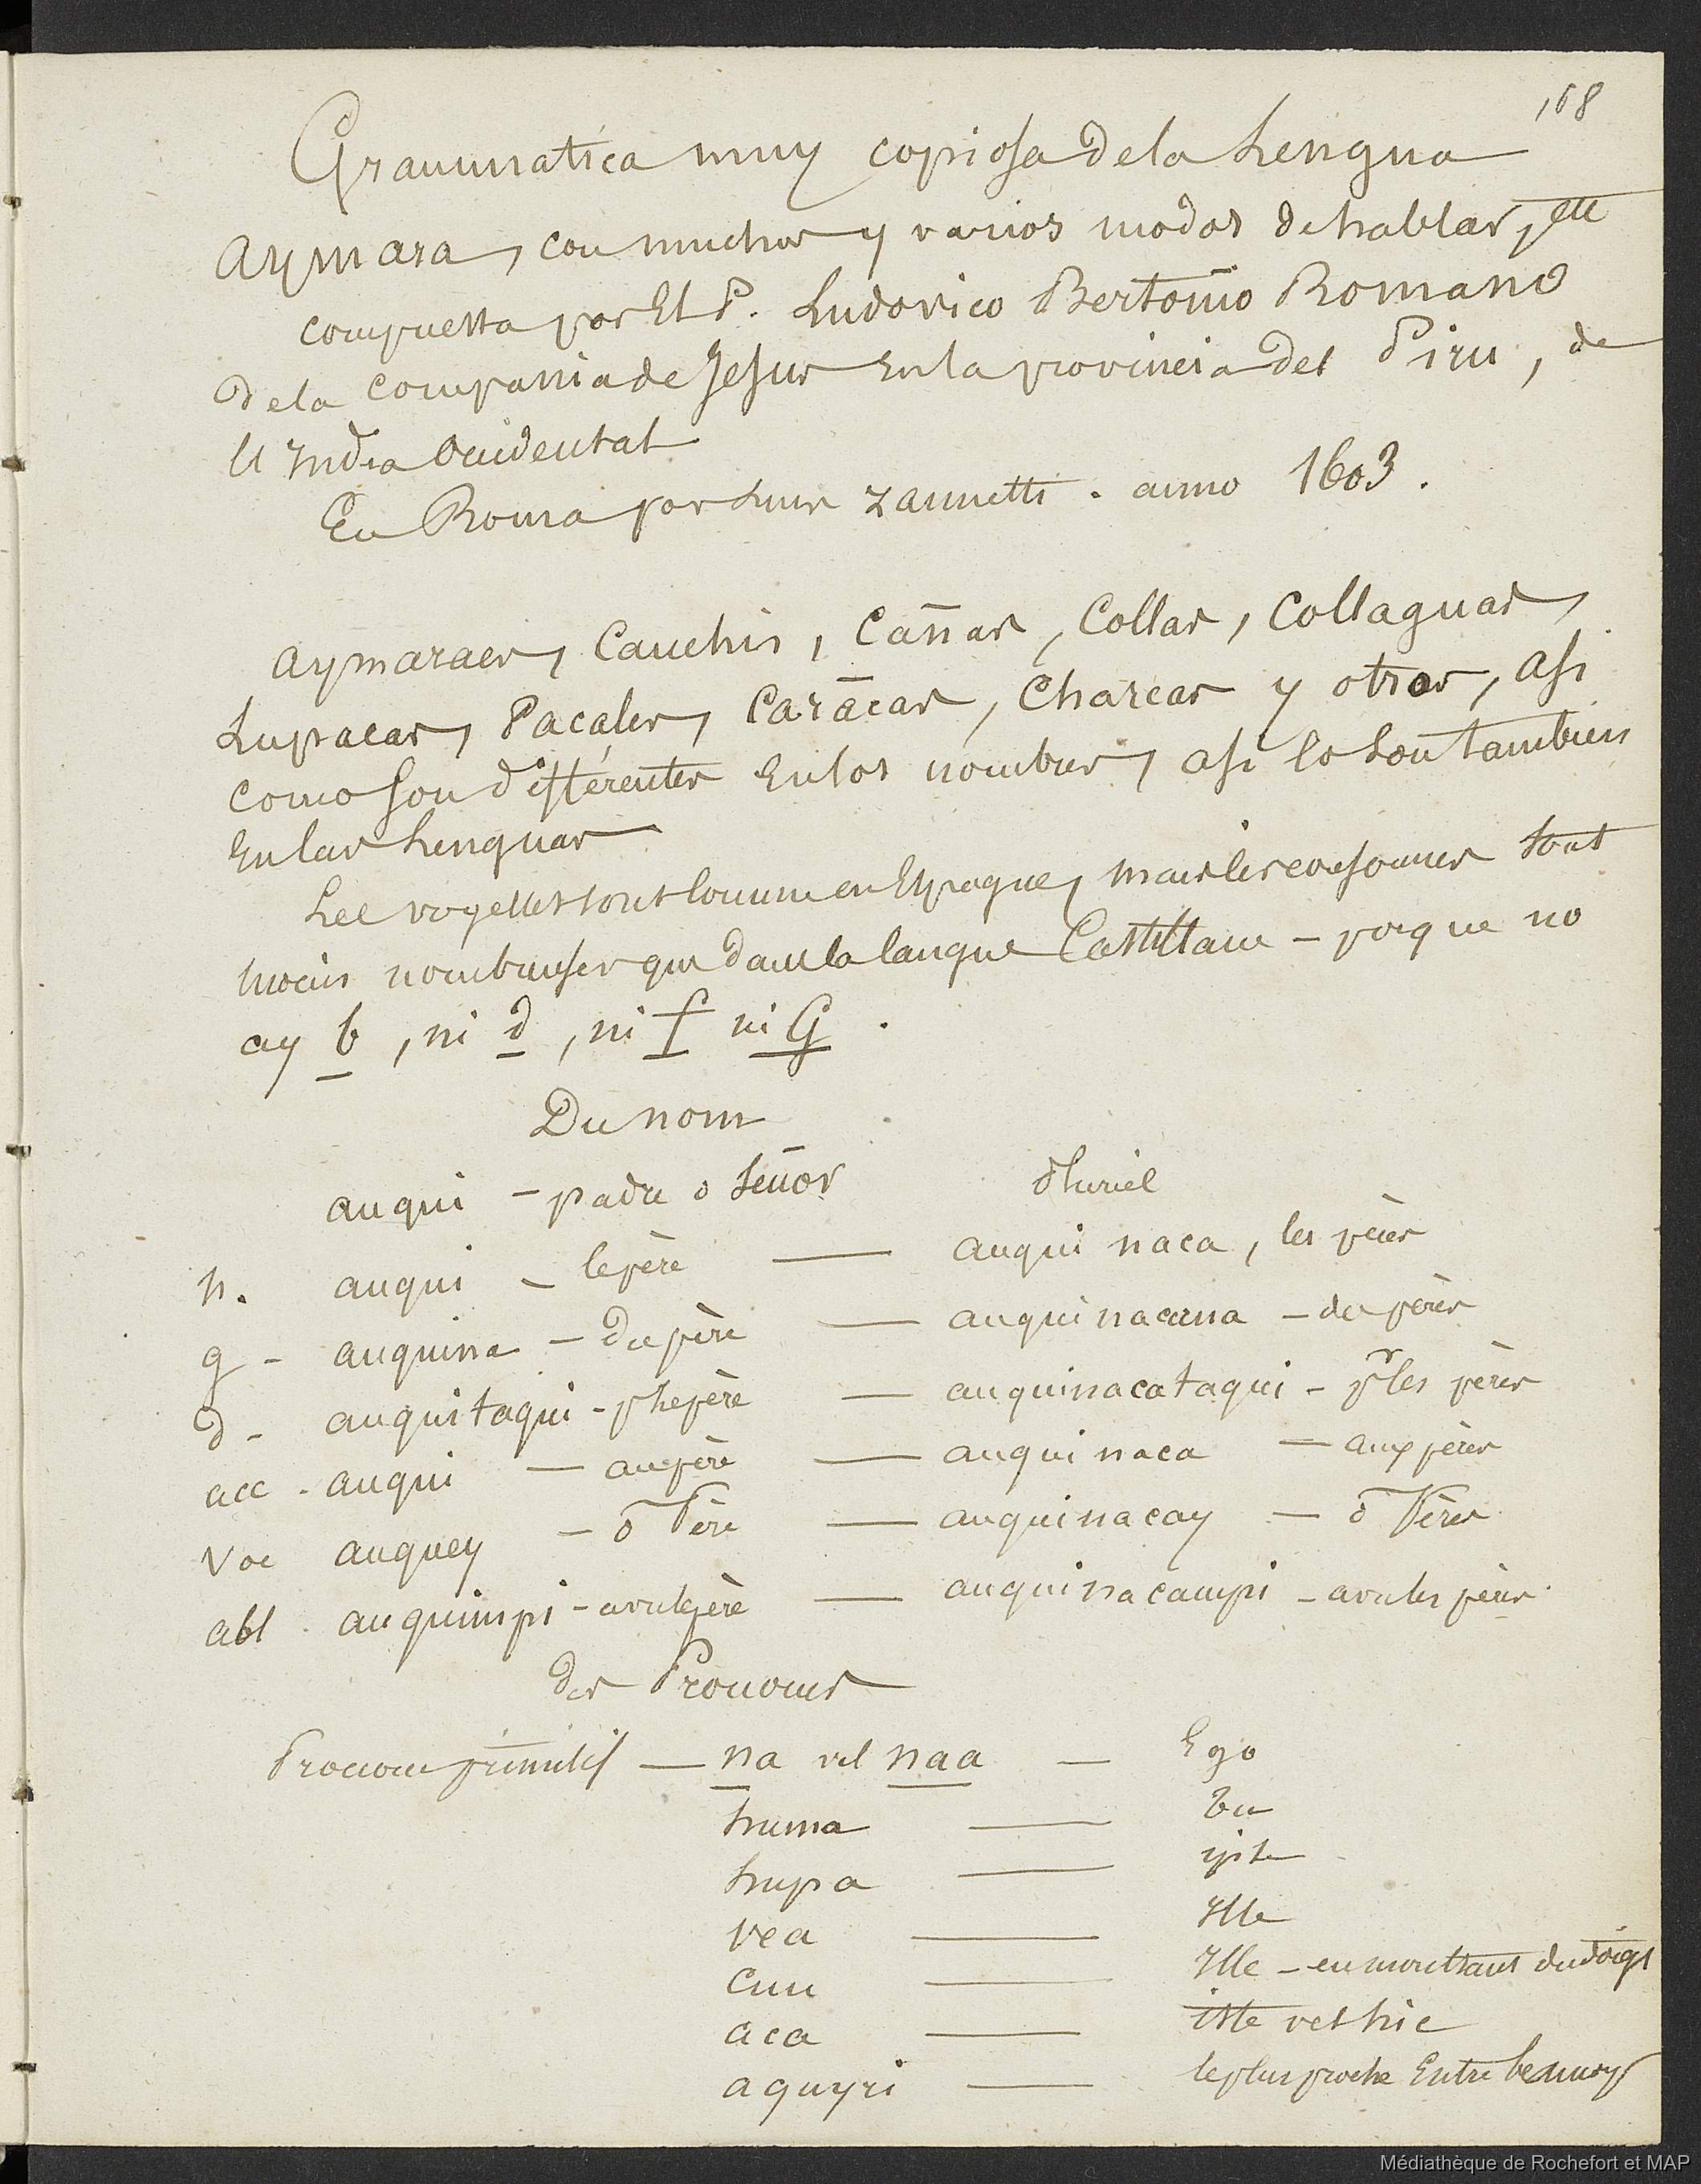 168
Grammatica muy copiosa de la Lengua
Aymara, con muchos y varios modos de hablar, etc
compuesta por El P. Ludovico Bertonio Romano
de la compania de Jesus En la provincia del Piru, de
la India Occidental
En Roma por Luis Zannetti. anno 1603.
Aymaraes, Canchis, Cañas, Collas, Collaguas,
Lupacas, Pacases, Carācas, Charcas y otros, asi
como son differentes En los nombres, asi lo son tambien
En las Lenguas
Les voyelles sont comme en Espagne, mais les consonnes sont
moins nombreuses que dans la langue Castillane – porque no
ay b, ni d, ni f ni G.
Du nom
auqui – padre o señor Pluriel
n. auqui – le père — auqui naca, les pères
g – auquina – du père — auquinacana – des pères
d – auquitaqui – pr le père — auquinacataqui – pr les pères
acc. auqui – au père — auqui naca – aux pères
Voc auquey – ô Père — auquinacay – ô Pères
abl. auquimpi – avec le père — auquinacampi – avec les pères.
des Pronoms
Pronom primitif — na vel naa — Ego
huma — tu
hupa — ipse
vca — Ille
cuu — Ille – en montrant du doigt
aca — iste vel hic
aquyri — le plus proche Entre
Médiathèque de Rochefort et MAP